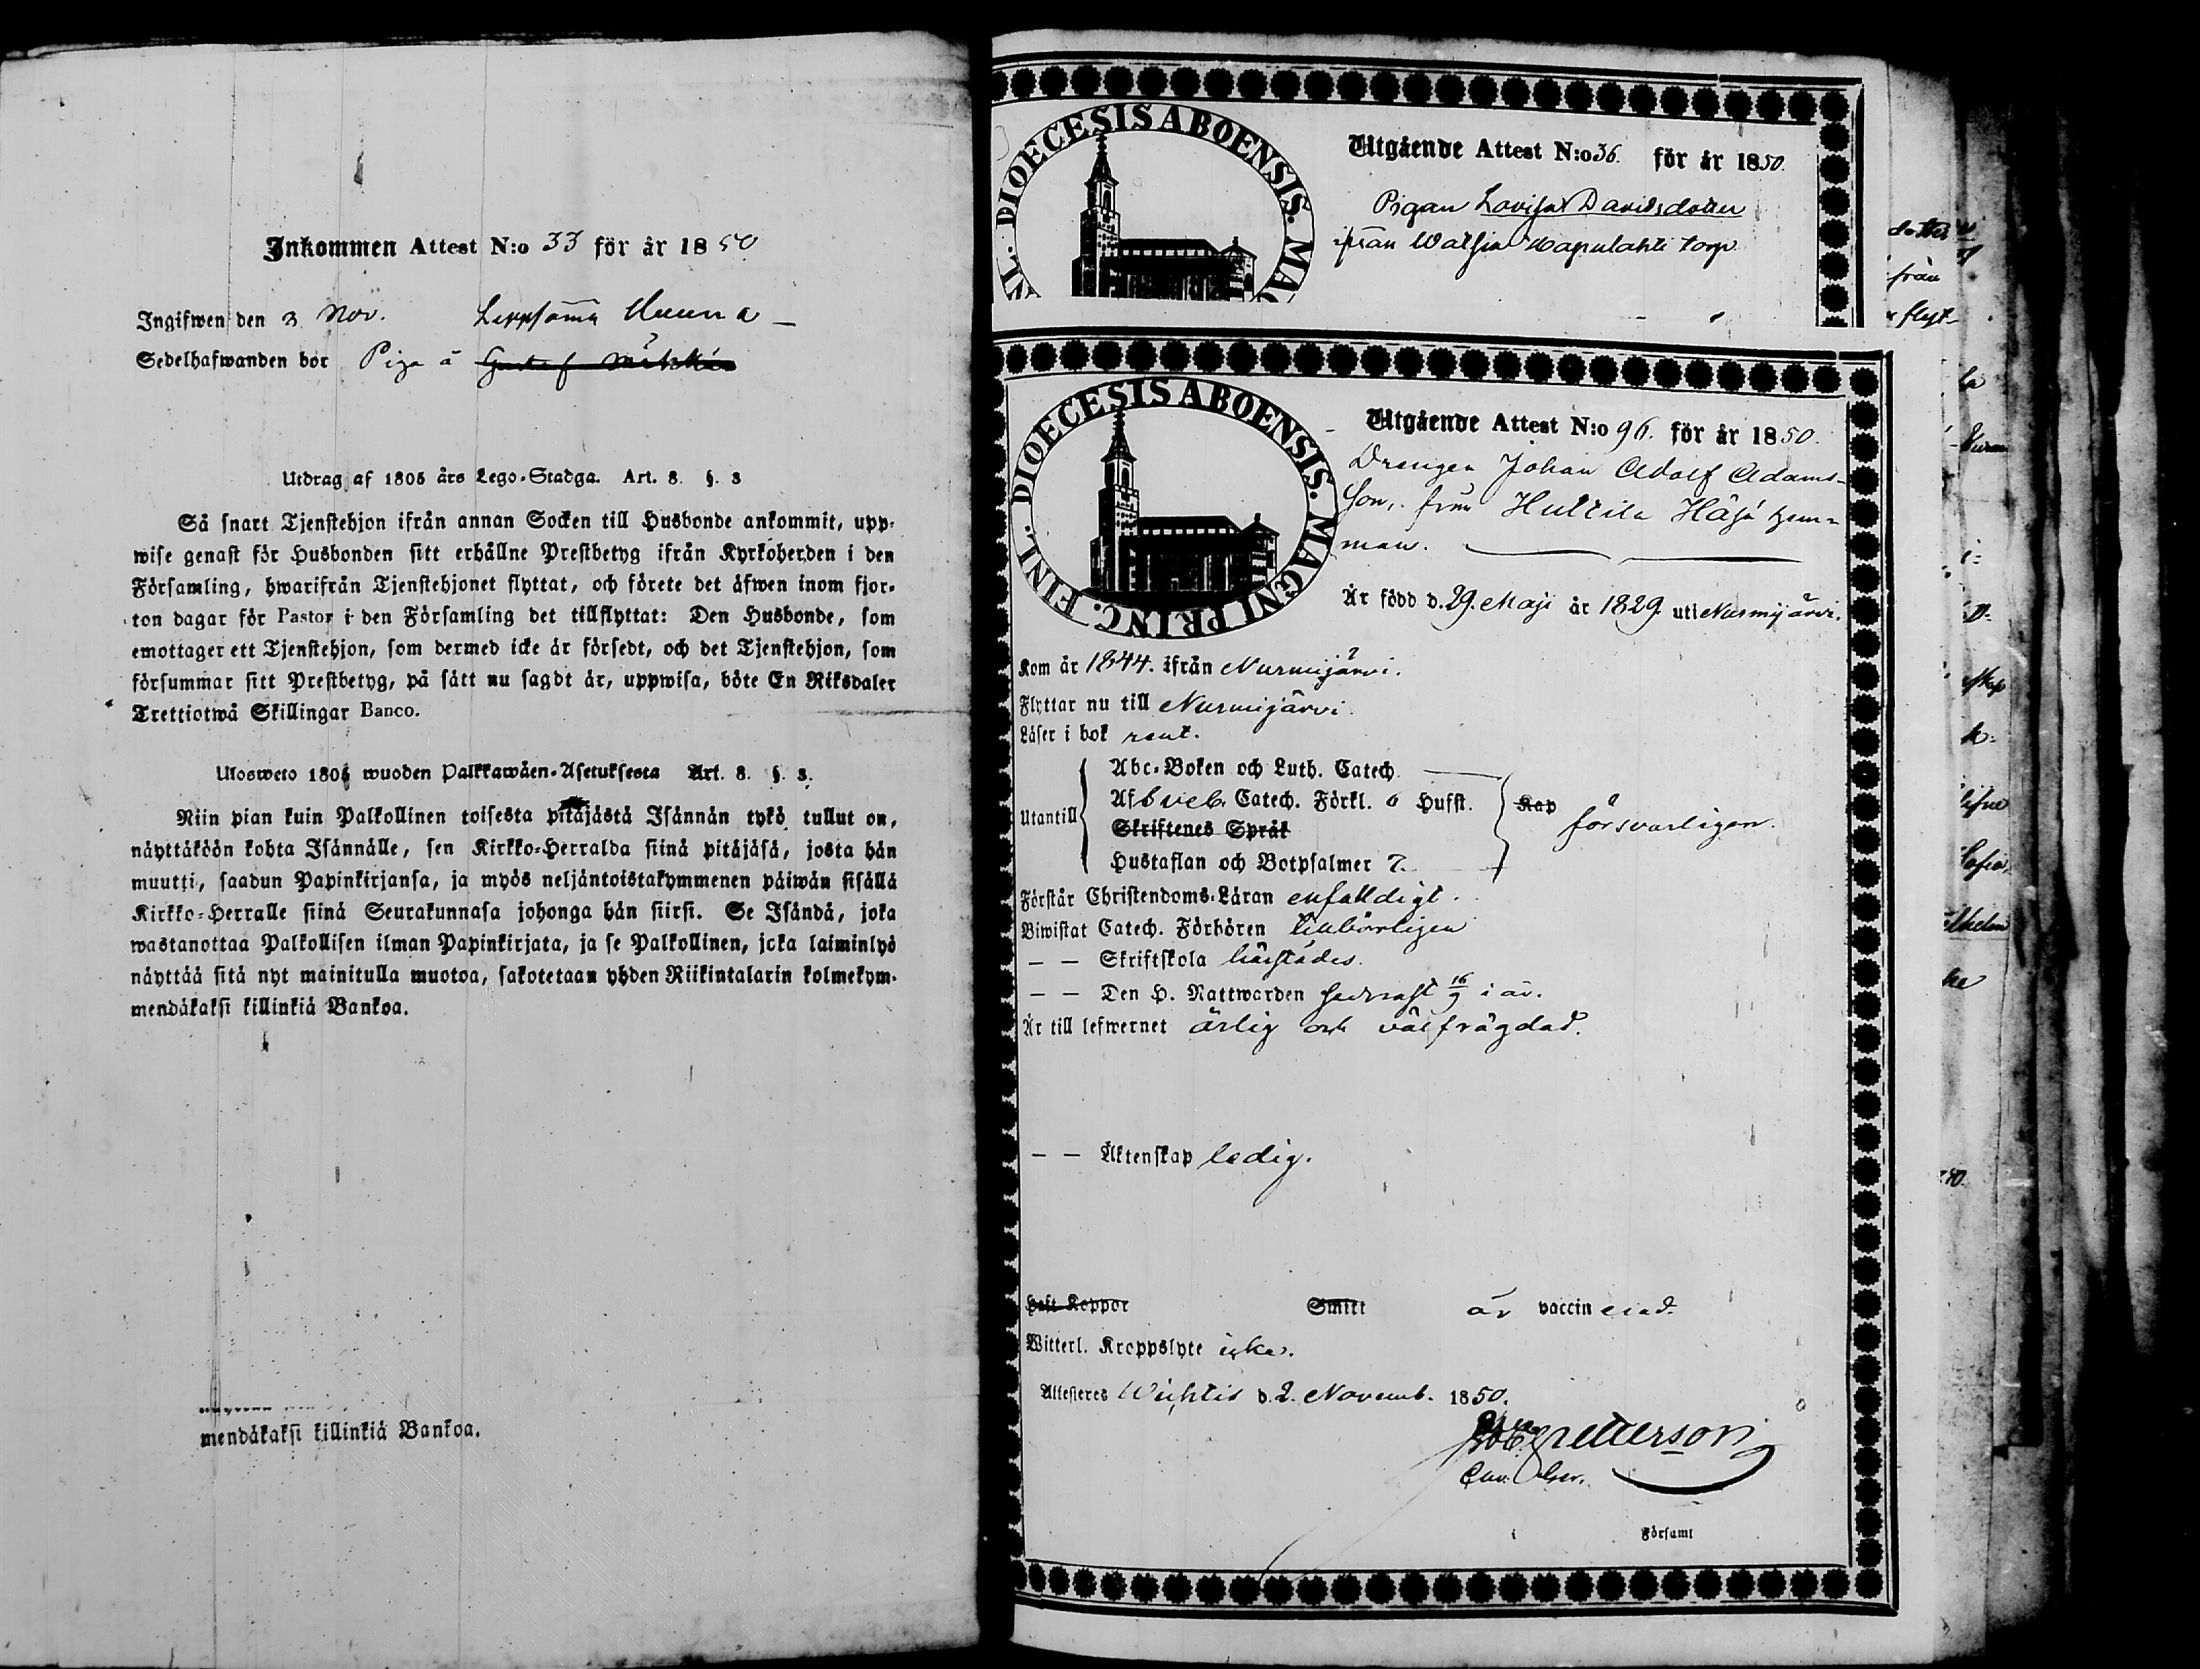 Inkommen Attest N:o 33 för år 1850
Ingifwen den 3 Nov. Leppsämä Uuma —
Sedelhafwanden bor Piga å Gustaf
Utdrag af 1805 års Lego-Stadga. Art. 8. §. 3
Så snart Tjenstehjon ifrån annan Socken till Husbonde ankommit, upp-
wise genast för Husbonden sitt erhållne Prestbetyg ifrån Kyrkoherden i den
Församling, hwarifrån Tjenstehjonet flyttat, och förete det äfwen inom fjor-
ton dagar för Pastor i den Församling det tillflyttat: Den Husbonde, som
emottager ett Tjenstehjon, som dermed icke är försedt, och det Tjenstehjon, som
försummar sitt Prestbetyg, på sätt nu sagdt är, uppwisa, böte En Riksdaler
Trettiotwå Skillingar Banco.
Ulosweto 1805 wuoden Palkkawäen-Asetuksesta Art. 8. §. 3.
Niin pian kuin Palkollinen toisesta pitäjästä Isännän tykö tullut on,
näyttäköön kohta Isännälle, sen Kirkko-Herralda siinä pitäjäsä, josta hän
muutti, saadun Papinkirjansa, ja myös neljäntoistakymmenen päiwän sisällä
Kirkko-Herralle siinä Seurakunnasa johonga hän siirsi. Se Isändä, joka
wastanottaa Palkollisen ilman Papinkirjata, ja se Palkollinen, joka laiminlyö
näyttää sitä nyt mainitulla muotoa, sakotetaan yhden Riikintalarin kolmekym-
mendäkaksi killinkiä Bankoa.
mendäkaksi killinkiä Bankoa.
DIOECESIS ABOENSIS. MAG
Utgående Attest N:o 36. för år 1850.
Pigan Lovisa Davidsdotter
ifrån Watsia Haapulahti torp
FINL. DIOECESIS ABOENSIS. MAGNI PRINC.
Utgående Attest N:o 96. för år 1850.
Drengen Johan Adolf Adams-
son, från Hultila Häjä hem-
man.
Är född d. 29. Maji år 1829. uti Nurmijärvi.
Kom år 1844. ifrån Nurmijärvi.
Flyttar nu till Nurmijärvi.
Läser i bok rent.
Utantill
Abc-Boken och Luth. Catech.
Af Sveb. Catech. Förkl. o Husst. Kap försvarligen.
Skriftenes Språk
Hustaflan och Botpsalmer 7.
Förstår Christendoms-Läran enfaldigt.
Biwistat Catech. Förhören tillbörligen
— — Skriftskola härstädes.
— — Den H. Nattwarden sednast 16/9 i år.
Är till lefwernet ärlig och välfrägdad.
— — Äktenskap ledig.
Haft Koppor Smitt är vaccinerad.
Witterl. Kroppslyte icke.
Attesteres Wichtis d. 2. Novemb. 1850.
Petterson
i Församl
dotter
från
flyt-
la
Sofia,
he